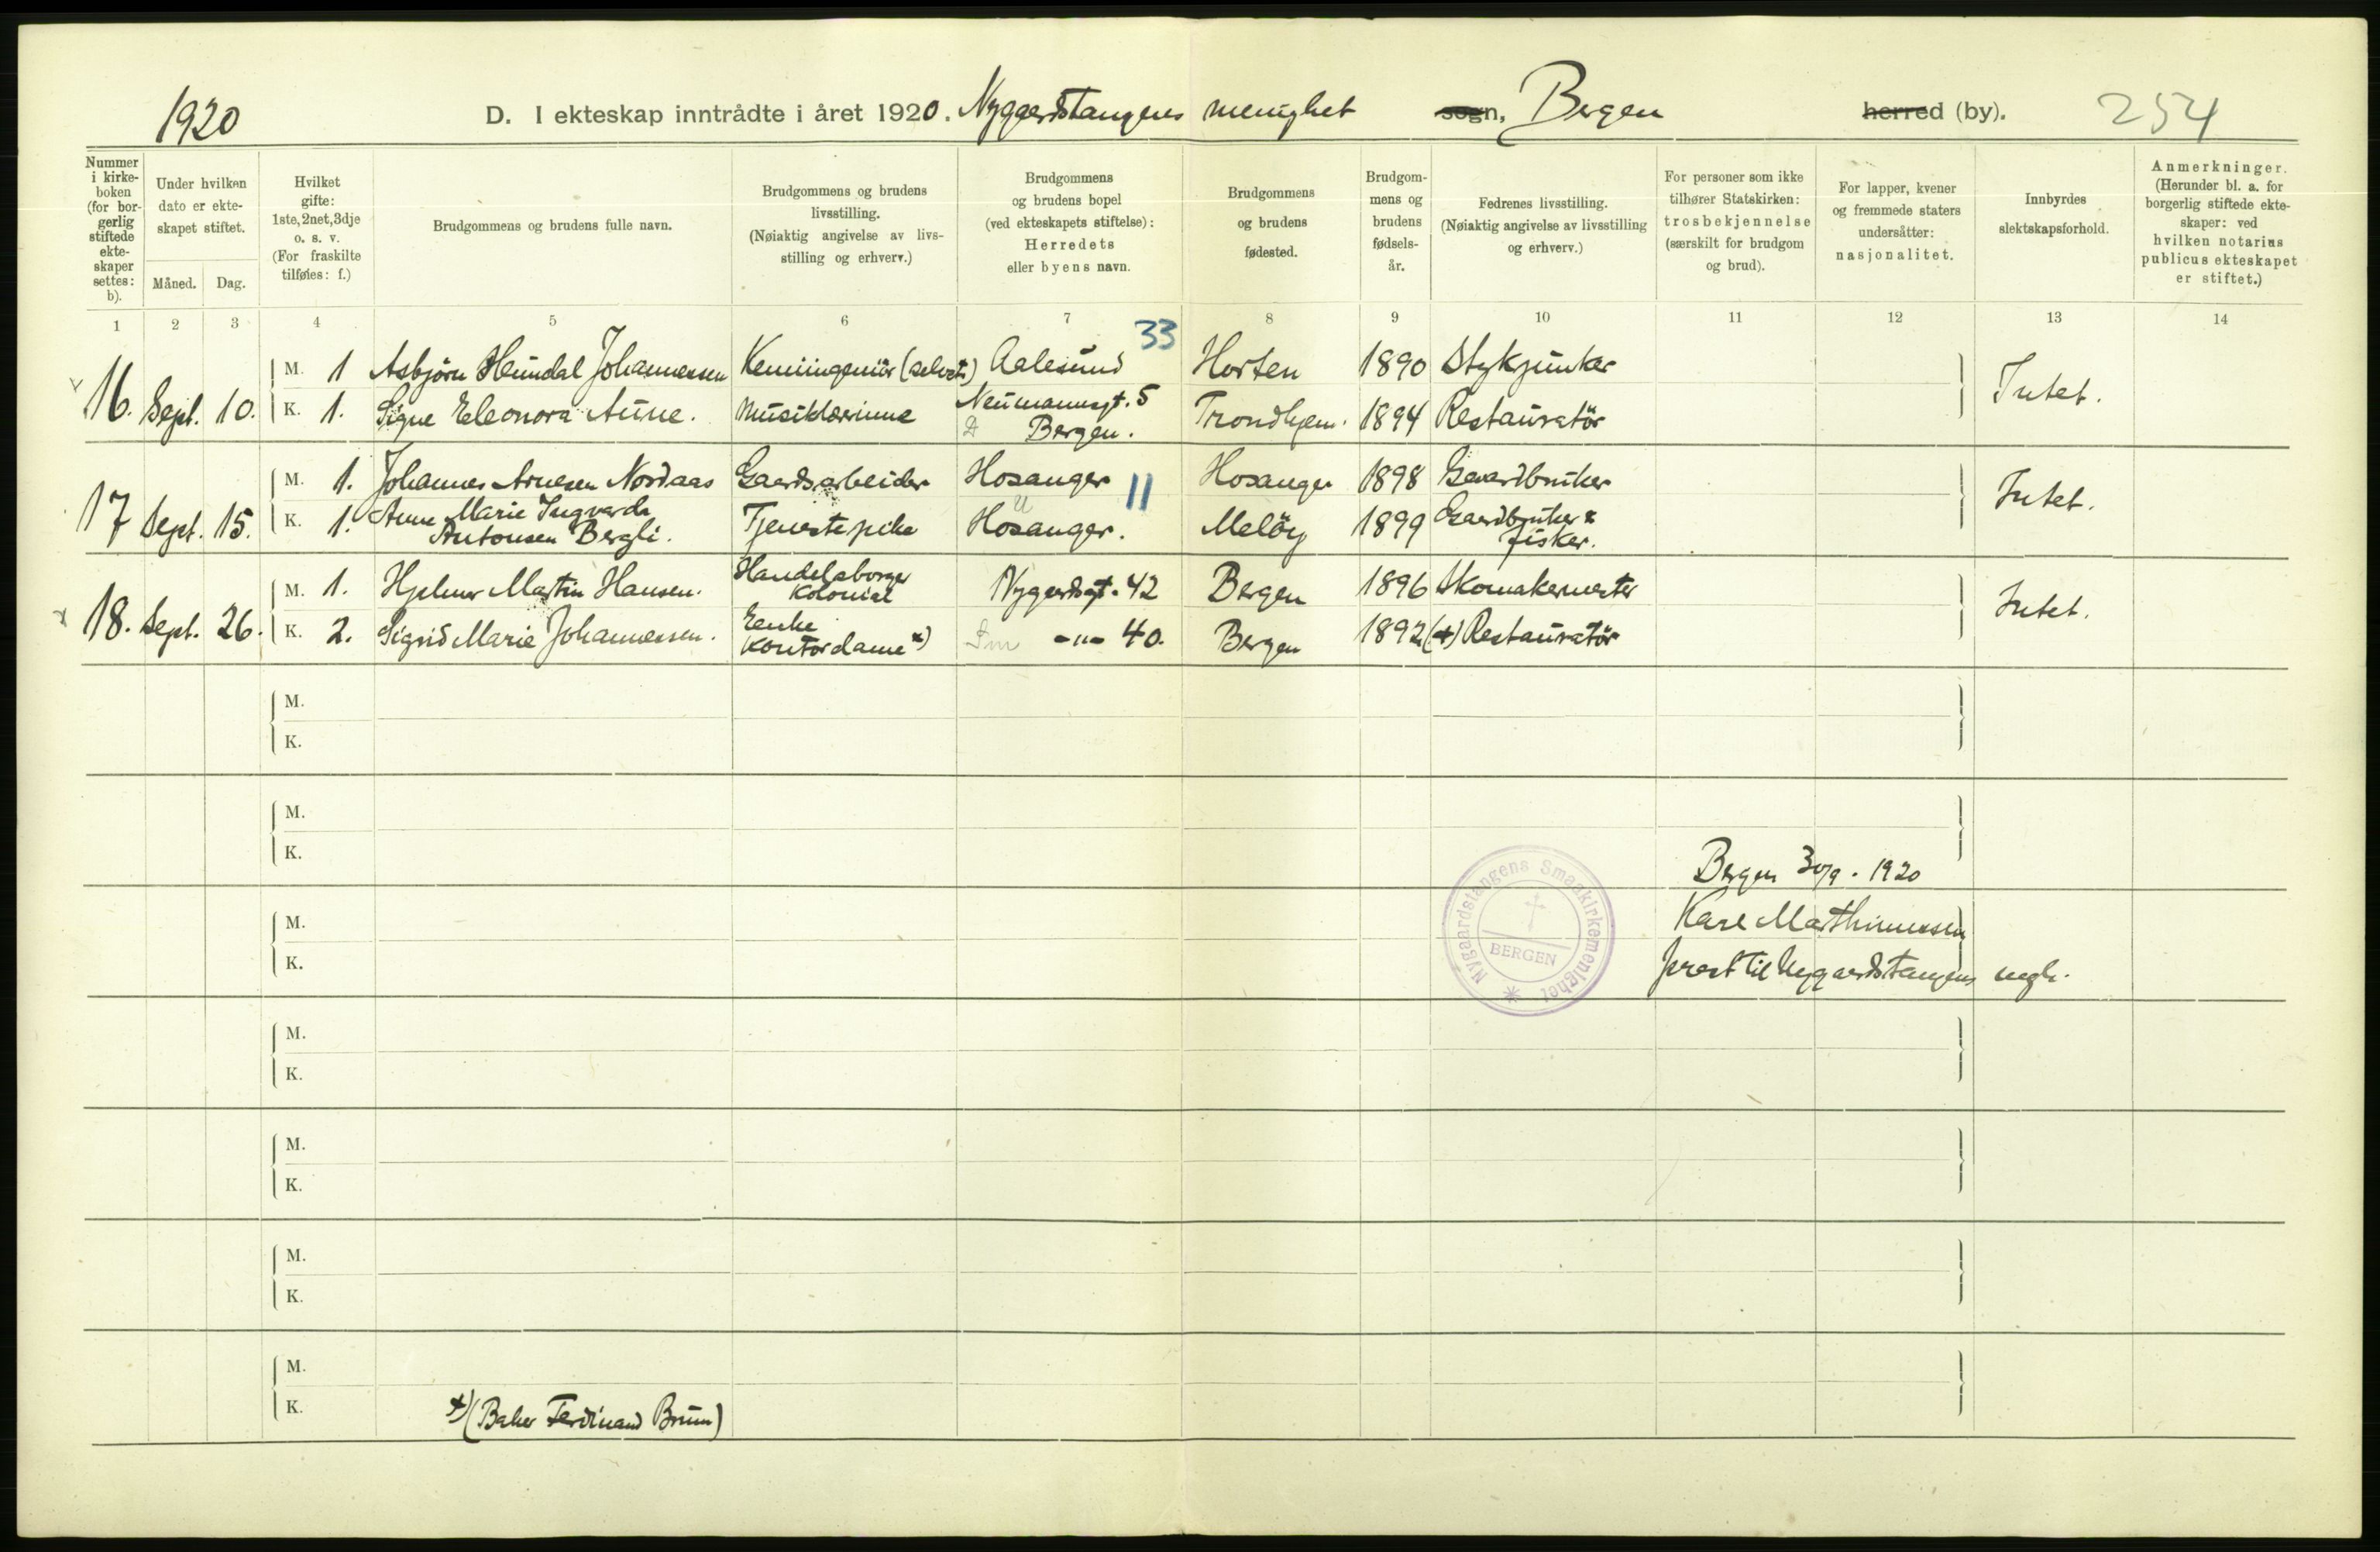 1920 D. I ekteskap inntrådte i året 1920. Nyggerdstangens menighet sogn, Bergen herred (by). 254
Nummer i kirke- boken (for bor- gerlig stiftede ekte- skaper settes: b).
Under hvilken dato er ekte- skapet stiftet.
Måned. Dag.
Hvilket gifte: 1ste, 2net, 3dje o. s. v. (For fraskilte tilføies: f.)
Brudgommens og brudens fulle navn.
Brudgommens og brudens livsstilling. (Nøiaktig angivelse av livs- stilling og erhverv.)
Brudgommens og brudens bopel (ved ekteskapets stiftelse): Herredets eller byens navn.
Brudgommens og brudens fødested.
Brudgom- mens og brudens fødsels- år.
Fedrenes livsstilling. (Nøiaktig angivelse av livsstilling og erhverv.)
For personer som ikke tilhører Statskirken: trosbekjennelse (særskilt for brudgom og brud).
For lapper, kvener og fremmede staters undersåtter: nasjonalitet.
Innbyrdes slektskapsforhold.
Anmerkninger. (Herunder bl. a. for borgerlig stiftede ekte- skaper: ved hvilken notarius publicus ekteskapet er stiftet.)
1 2 3 4 5 6 7 8 9 10 11 12 13 14
33
16. Sept. 10. M. 1 Asbjörn Heimdal Johannessen Kemiingeniör (selvst.) Aalesund Horten 1890 Stykjunker Intet.
K. 1. Signe Eleonora Aune. Musiklærinne Neumannsgt. 5 Bergen. Trondhjem. 1894 Restauratör
17 Sept. 15. M. 1. Johannes Arnesen Nordaas Gaardsarbeider Hosanger 11 Hosanger 1898 Gaardbruker Intet.
K. 1. Anne Marie Ingvarda Antonsen Bergli. Tjenestepike Hosanger. Melöy 1899 Gaardbruker & fisker.
18. Sept. 26. M. 1. Hjalmar Martin Hansen. Handelsborger Kolonial Nygaardsgt. 42 Bergen 1896 Skomakermester Intet.
K. 2. Sigrid Marie Johannessen. Enke Kontordame x) -"- 40. Bergen 1892 (+) Restauratör
M.
K.
M.
K.
Bergen 30/9. 1920
M.
Karl Marthinussen
K.
prest til Nygaardstangens mgh.
Nygaardstangens Smaakirkemenighet
BERGEN
M.
K.
M.
K.
M.
K.
M.
K.
x) (Baker Ferdinand Bruun)